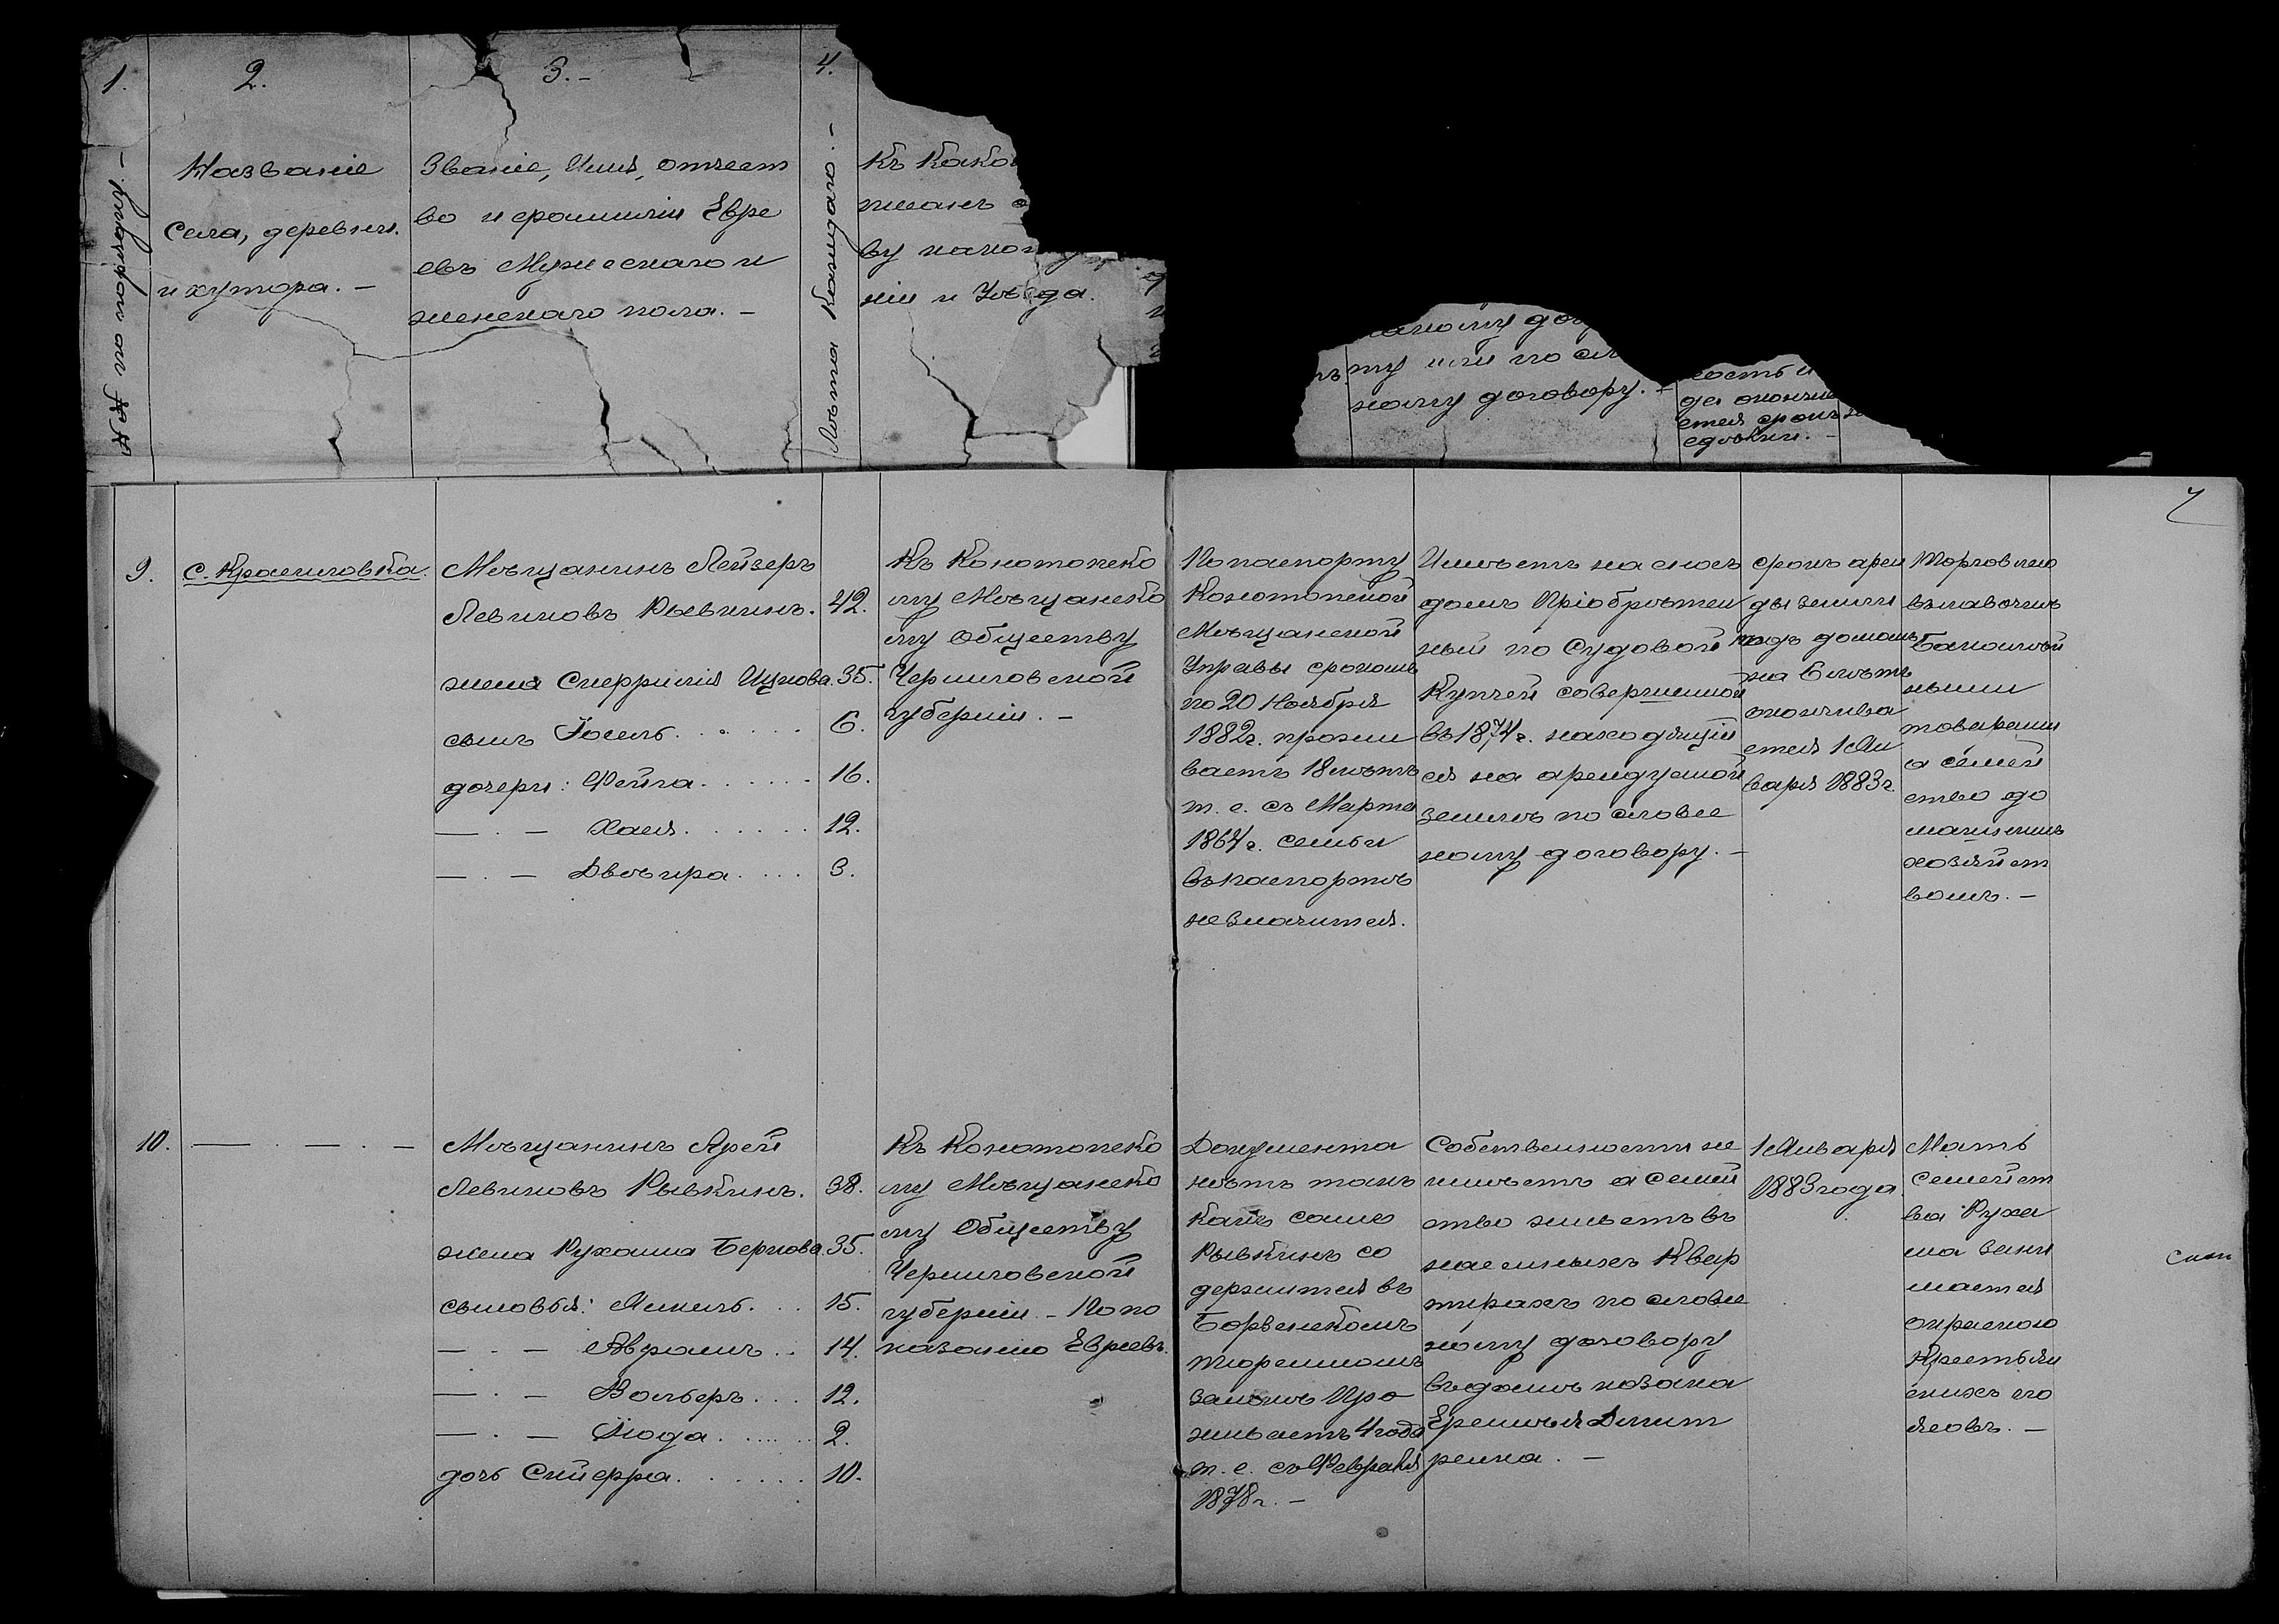 1.
2.
3. –
4.
№№ по порядку. –
Названіе
села, деревни.
и хутора. –
Званіе, Имя, отчест
во и фамилія Евре
евъ Мужескаго и
женскаго пола. –
Лѣта каждаго. –
Къ како
писанъ
ву како
ніи и Уѣзда.
какому
ту или по сл
ному договору. –
ность и
да оканчив
ется срокъ
сдѣлки. –
7
9.
с. Красиловка.
Мѣщанинъ Лейзеръ
Левиковъ Рывкинъ. 42.
жена Сперриня Ицкова. 35.
сынъ Іосель. . . . . . 6.
дочери: Фейга. . . . . . 16.
— . — Хая. . . . . . . 12.
— . — Двѣира. . . . 3.
Къ Конотопско
му Мѣщанско
му Обществу
Черниговской
губерніи. –
По паспорту
Конотопской
Мѣщанской
Управы срокомъ
по 20 Ноября
1882 г. прожи
ваетъ 18 лѣтъ
т. е. съ Марта
1864 г. семьи
въ паспортѣ
незначится.
Имѣетъ на снось
домъ Пріобрѣтен
ный по Судовой
Купчей совершенной
въ 1874 г. находящій
ся на арендуемой
землѣ по словес
ному договору. –
срокъ арен
ды земли
подъ домомъ
на 6 лѣтъ
оканчива
ется 1 Ян
варя 1883 г.
Торговлею
въ лавочкѣ
бакалѣй
ными
товарами
а семей
ство до
машнимъ
хозяйст
вомъ. –
10.
— . — . —
Мѣщанинъ Арей
Левиковъ Рывкинъ. 38.
жена Рухама Беркова. 35.
сыновья: Янкель. . . 15.
— . — Аврамъ. . . 14.
— . — Вольфъ. . . 12.
— . — Іюда. . . . . . 2.
дочь Спйерра. . . . . . . 10.
Къ Конотопско
му Мѣщанско
му Обществу
Черниговской
губерніи. – По по
казанію Евреевъ.
Документа
нѣтъ такъ
какъ самъ
Рывкинъ со
держится въ
Борзенскомъ
тюремномъ
замкѣ Про
живаетъ 4 года
т. е. съ Февраля
1878 г. –
Собственности не
имѣетъ а семей
ство живетъ въ
наемныхъ Квар
тирахъ по словес
ному договору
въ домѣ козака
Еремѣя Дмит
ренка. –
1 Января
1883 года.
Мать
семейст
ва Руха
ма зани
мается
окраскою
Крестьян
скихъ по
ясовъ. –